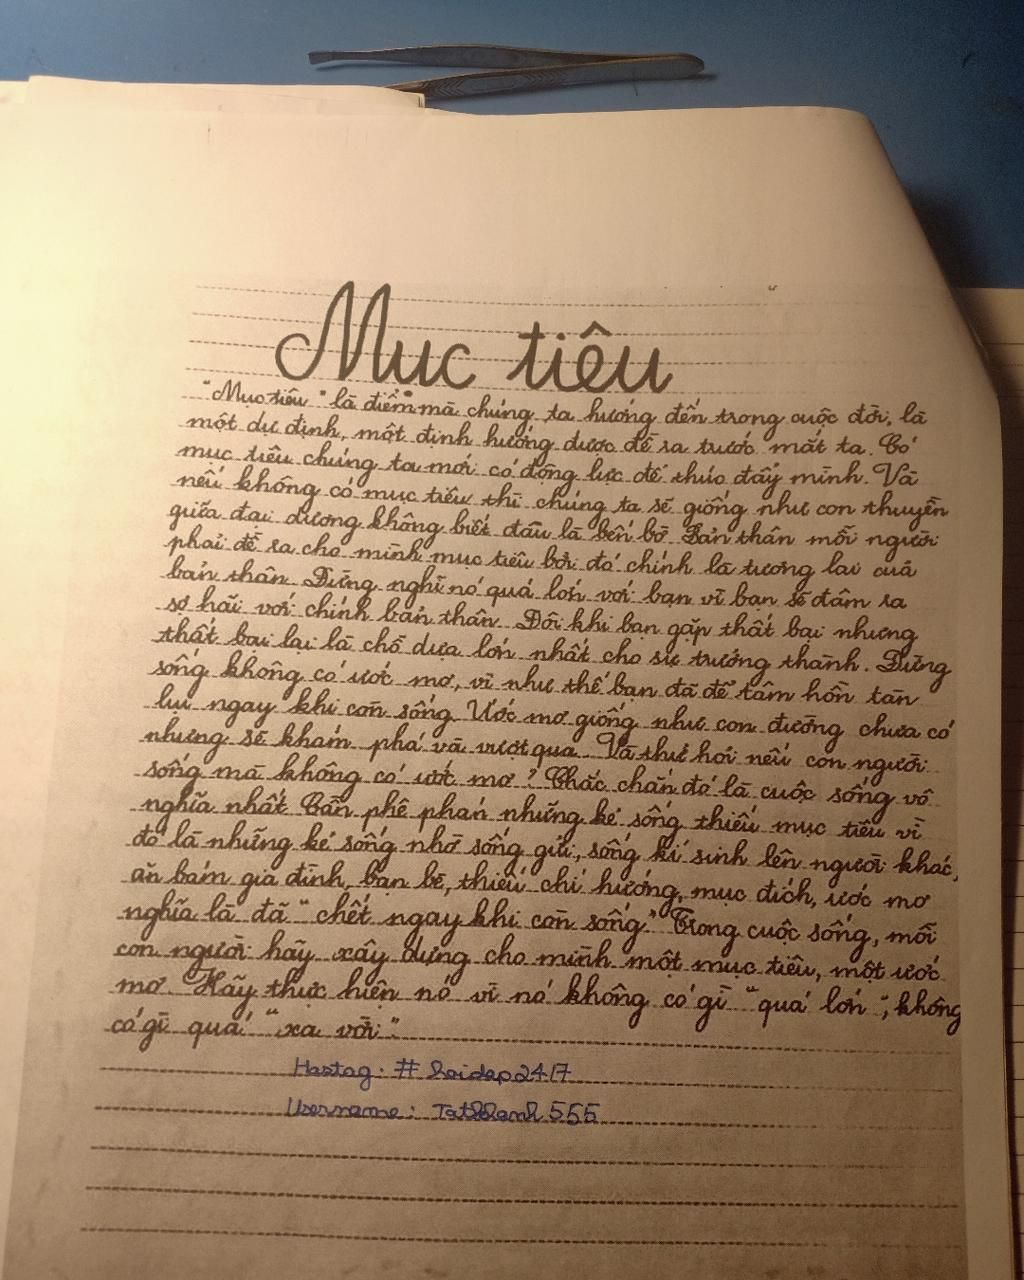 Mục tiêu
"Mục tiêu" là điểm mà chúng ta hướng đến trong cuộc đời, là
một dự định, một định hướng được đề ra trước mắt ta. Có
mục tiêu chúng ta mới có động lực để thúc đẩy mình. Và
nếu không có mục tiêu thì chúng ta sẽ giống như con thuyền
giữa đại dương không biết đâu là bến bờ. Bản thân mỗi người
phải đề ra cho mình mục tiêu bởi đó chính là tương lai của
bản thân. Đừng nghĩ nó quá lớn với bạn vì bạn sẽ đâm ra
sợ hãi với chính bản thân. Đôi khi bạn gặp thất bại nhưng
thất bại lại là chỗ dựa lớn nhất cho sự trưởng thành. Đừng
sống không có ước mơ, vì như thế bạn đã để tâm hồn tàn
lụi ngay khi còn sống. Ước mơ giống như con đường chưa có
nhưng sẽ khám phá và vượt qua. Và thử hỏi nếu con người
sống mà không có ướt mơ? Chắc chắn đó là cuộc sống vô
nghĩa nhất. Cần phê phán những kẻ sống thiếu mục tiêu vì
đó là những kẻ sống nhờ sống gửi, sống kí sinh lên người khác,
ăn bám gia đình, bạn bè, thiếu chí hướng, mục đích, ước mơ
nghĩa là đã "chết ngay khi còn sống." Trong cuộc sống, mỗi
con người hãy xây dựng cho mình một mục tiêu, một ước
mơ. Hãy thực hiện nó vì nó không có gì "quá lớn", không
có gì quá "xa vời"
Hastag: # hoidap247
Username: Tatkhanh555